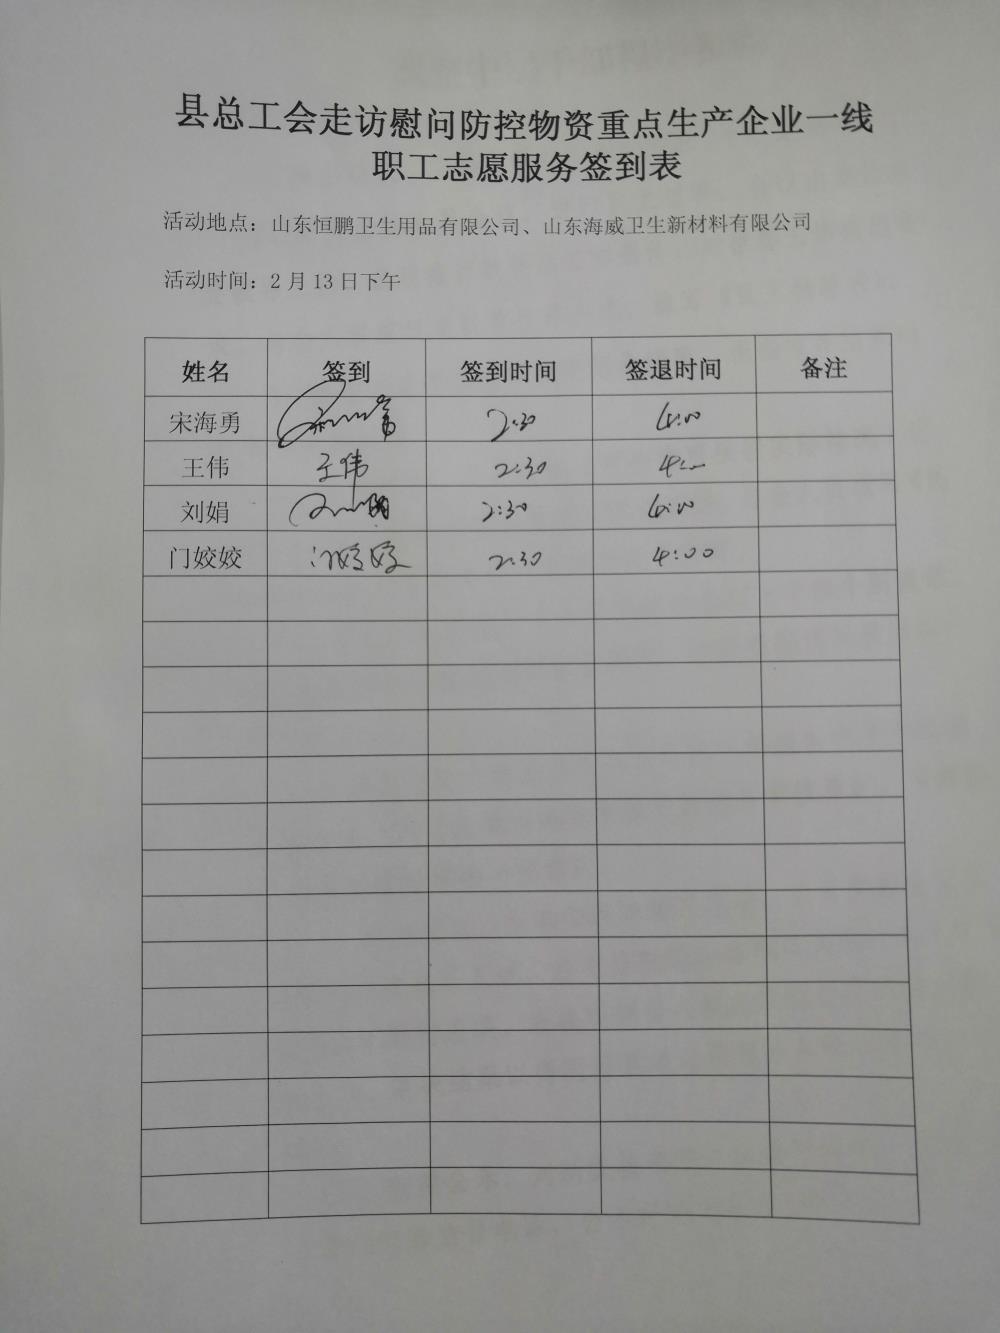 县总工会走访慰问防控物资重点生产企业一线
职工志愿服务签到表
活动地点：山东恒鹏卫生用品有限公司、山东海威卫生新材料有限公司
活动时间：2月13日下午
姓名 签到 签到时间 签退时间 备注
宋海勇 2:30 4:00
王伟 王伟 2:30
刘娟 2:30 4:00
门姣姣 门姣姣 2:30 4:00